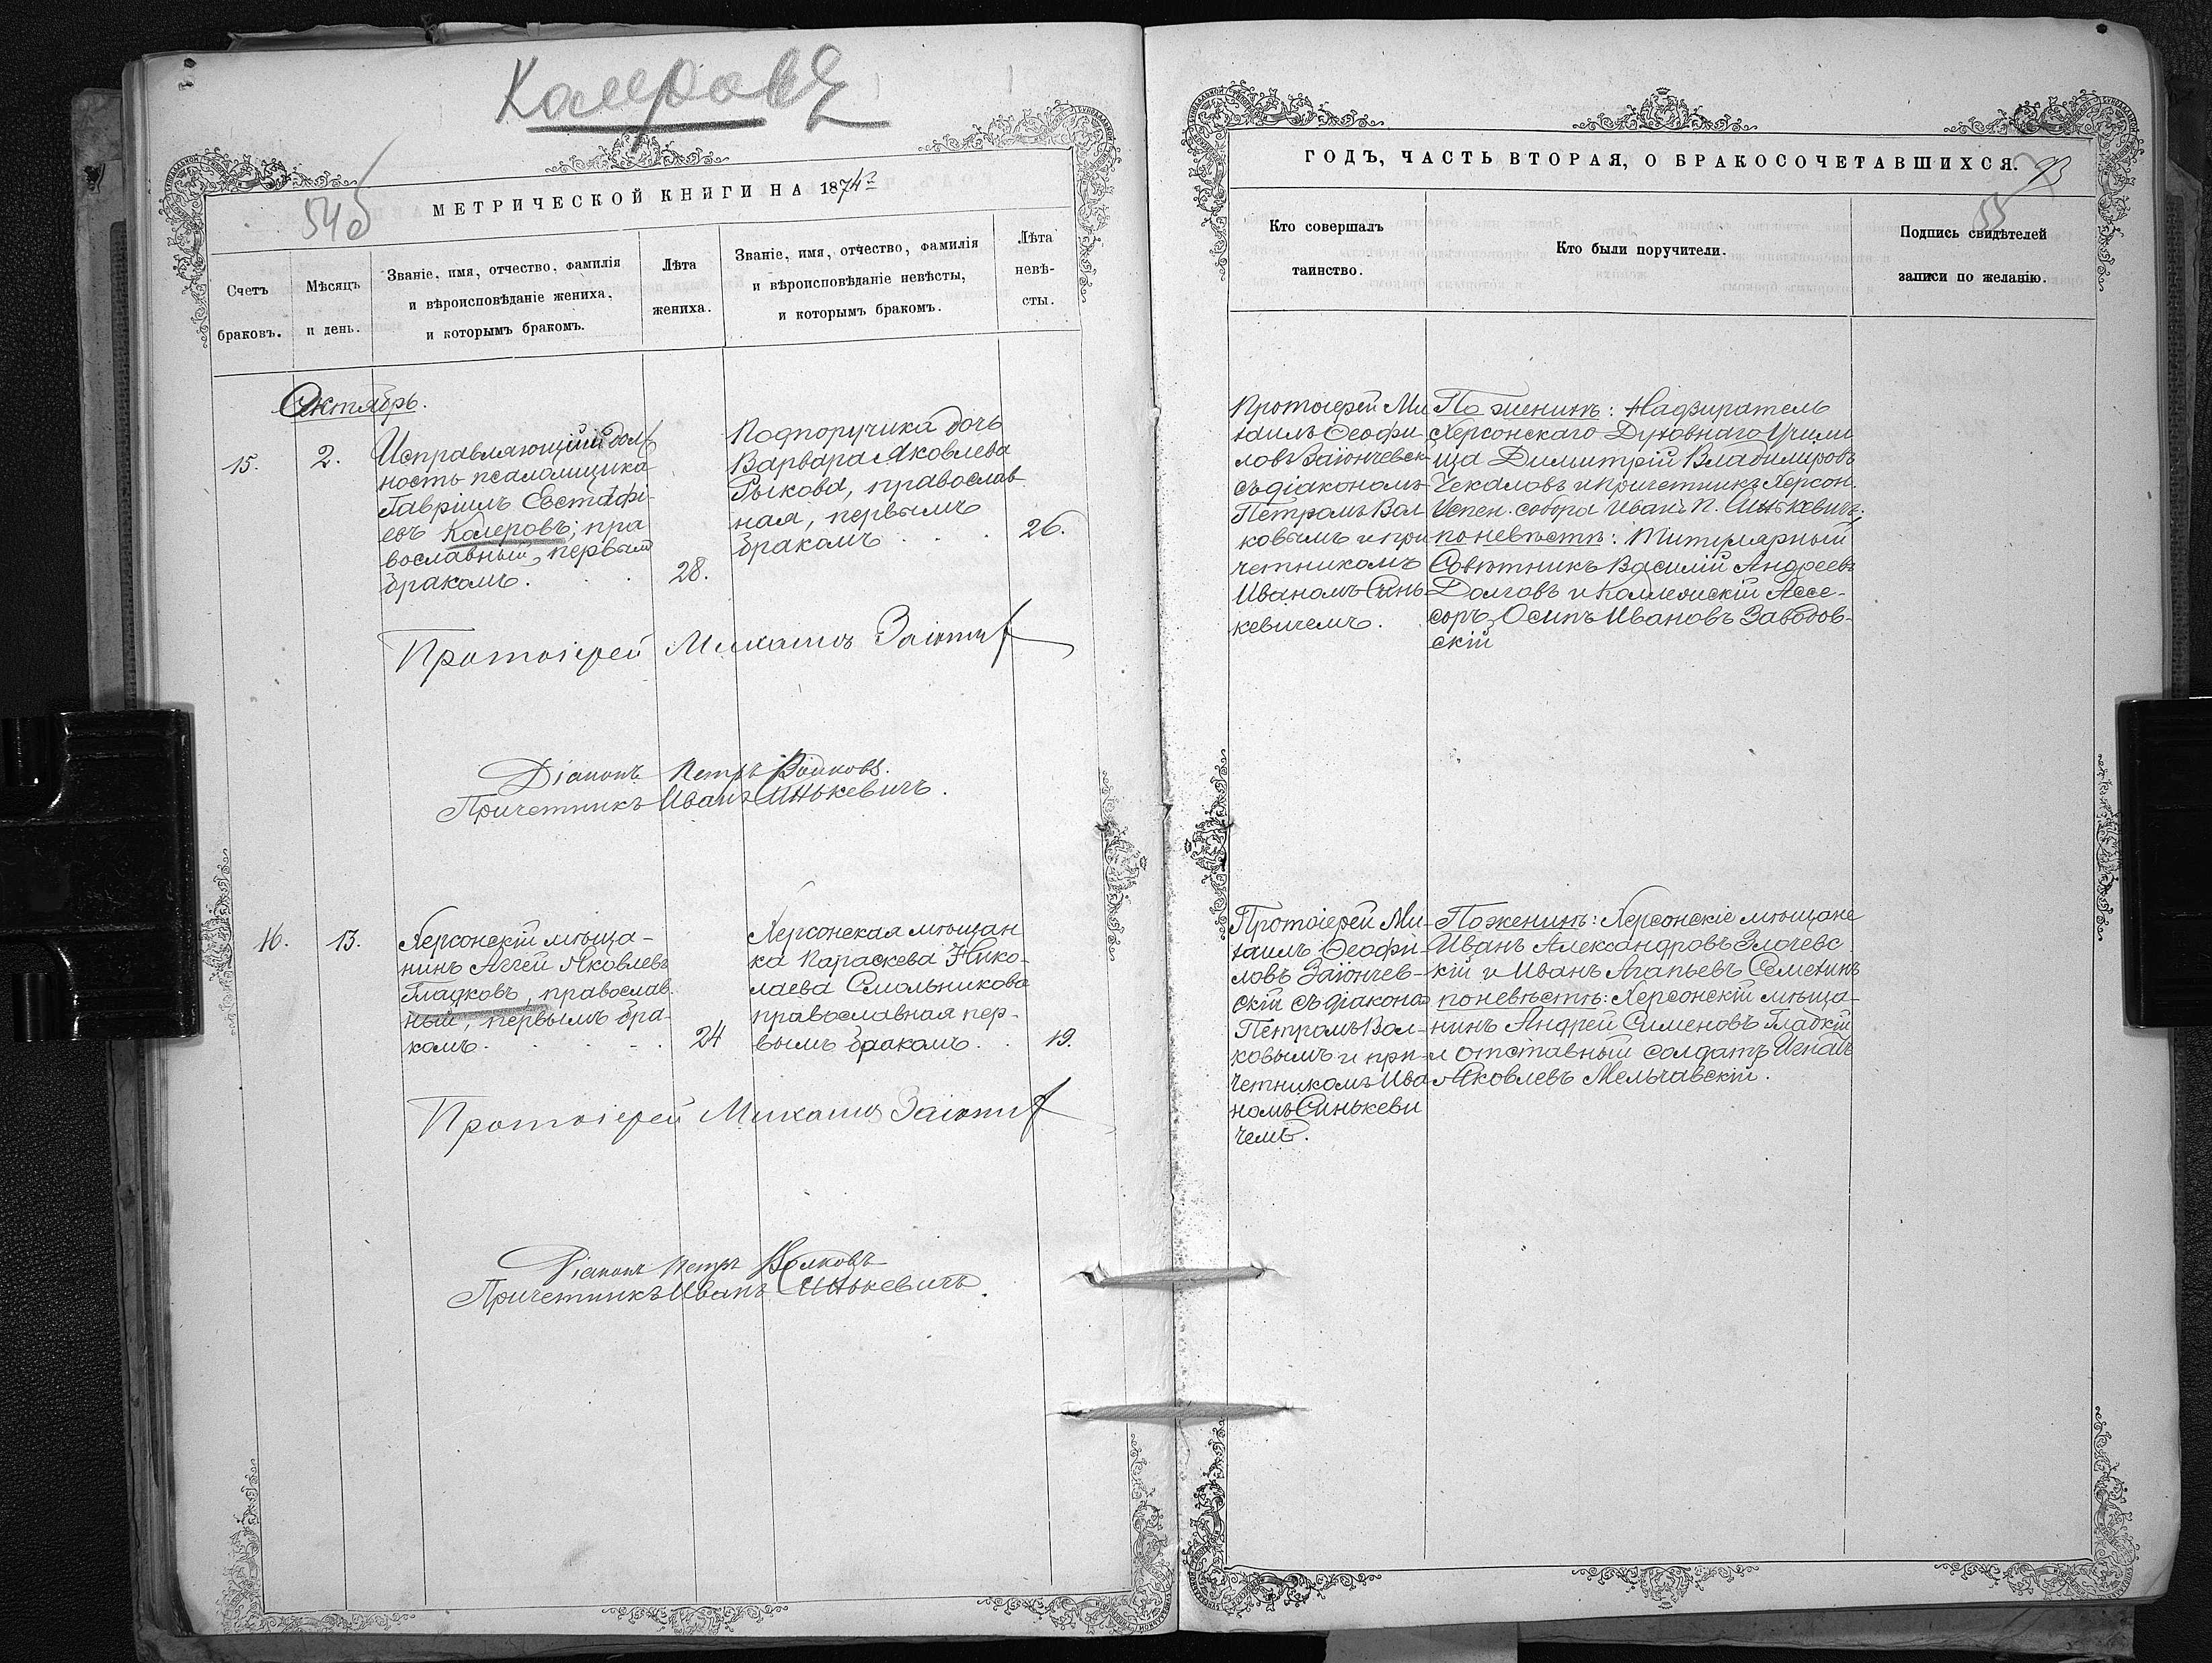 Калеровъ
54об
МЕТРИЧЕСКОЙ КНИГИ НА 1874й
Счетъ
браковъ.
Мѣсяцъ
и день.
Званіе, имя, отчество, фамилія
и вѣроисповѣданіе жениха,
и которымъ бракомъ.
Лѣта
жениха.
Званіе, имя, отчество, фамилія
и вѣроисповѣданіе невѣсты,
и которымъ бракомъ.
Лѣта
невѣ-
сты.
Октябрь.
15.
2.
Исправляющій долж
ность псаломщика
Гавріилъ Евстафі-
евъ Калеровъ; пра
вославный, первымъ
бракомъ.
28.
Подпоручика дочь
Варвара Яковлева
Рыкова, православ
ная, первымъ
бракомъ
26.
Протоіерей Михаилъ
Діаконъ Петръ Волковъ.
Причетникъ Иванъ Синькевичъ.
16.
13.
Херсонскій мѣща-
нинъ Аггей Яковлевъ
Гладковъ, православ
ный, первымъ бра-
комъ.
24
Херсонская мѣщан
ка Параскева Нико-
лаева Смольникова
православная пер-
вымъ бракомъ.
19.
Протоіерей Михаилъ
Діаконъ Петръ Волковъ
Причетникъ Иванъ Синькевичъ.
ГОДЪ, ЧАСТЬ ВТОРАЯ, О БРАКОСОЧЕТАВШИХСЯ.
55
Кто совершалъ
таинство.
Кто были поручители.
Подпись свидѣтелей
записи по желанію.
Протоіерей Ми
хаилъ Ѳеофи
ловъ Заіончевск
съ діакономъ
Петромъ Вол
ковымъ и при
четникомъ
Иваномъ Синь-
кевичемъ.
По женихѣ: Надзиратель
Херсонскаго Духовнаго Учили
ща Димитрій Владимировъ
Чекаловъ и Причетникъ Херсон.
Успен. собора Иванъ П. Синькевичъ;
по невѣстѣ: Титулярный
Совѣтникъ Василій Андреевъ
Долговъ и Коллежскій Ассе-
соръ Осипъ Ивановъ Завадов-
скій
Протоіерей Ми-
хаилъ Ѳеофи-
ловъ Заіончев-
скій съ діакономъ
Петромъ Вол-
ковымъ и при-
четникомъ Ива
номъ Синькеви
чемъ.
По женихѣ: Херсонскіе мѣщане
Иванъ Александровъ Злочевс
кій и Иванъ Агапьевъ Семехинъ
по невѣстѣ: Херсонскій мѣща-
нинъ Андрей Сименовъ Гладкій
и отставный солдатъ Игнатъ
Яковлевъ Мельчавскій.